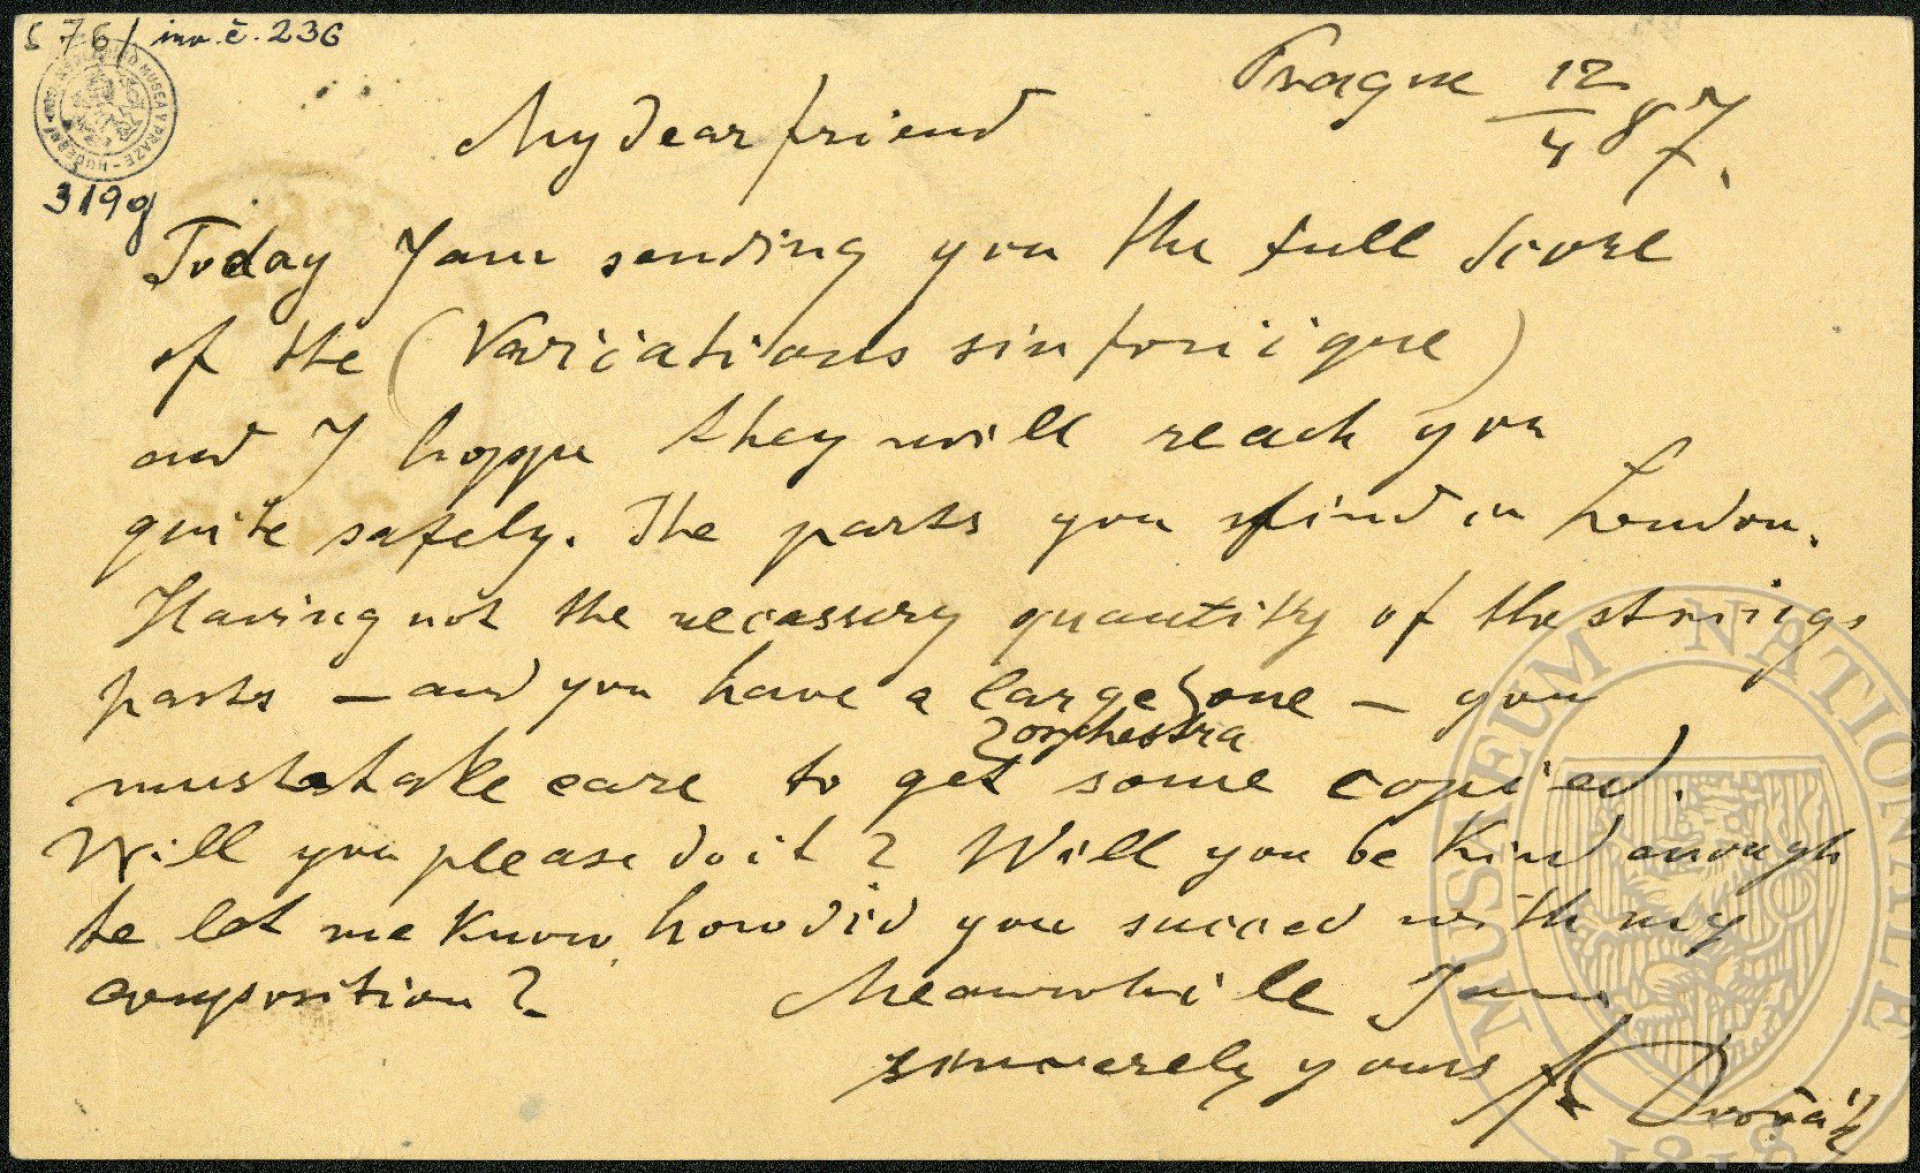 S 76/ inv. č. 236
HUDEBNÍ ODD. NÁRODNÍHO MUSEA V PRAZE
319g
Prague 12/4 87.
My dear friend
Today I am sending you the full score
of the (Variciations sinfoniique)
and I hoppe they will reach you
quite safely. The parts you find in London.
Having not the necassary quantity of the strings
parts – and you have a large one – you
orchestra
must take care to get some copied.
Will you please do it? Will you be kind enough
te let me know how did you succed with my
composition? Meanwhile I am
sincerely yours A. Dvořák
MUSAEUM NATIONALE
1818